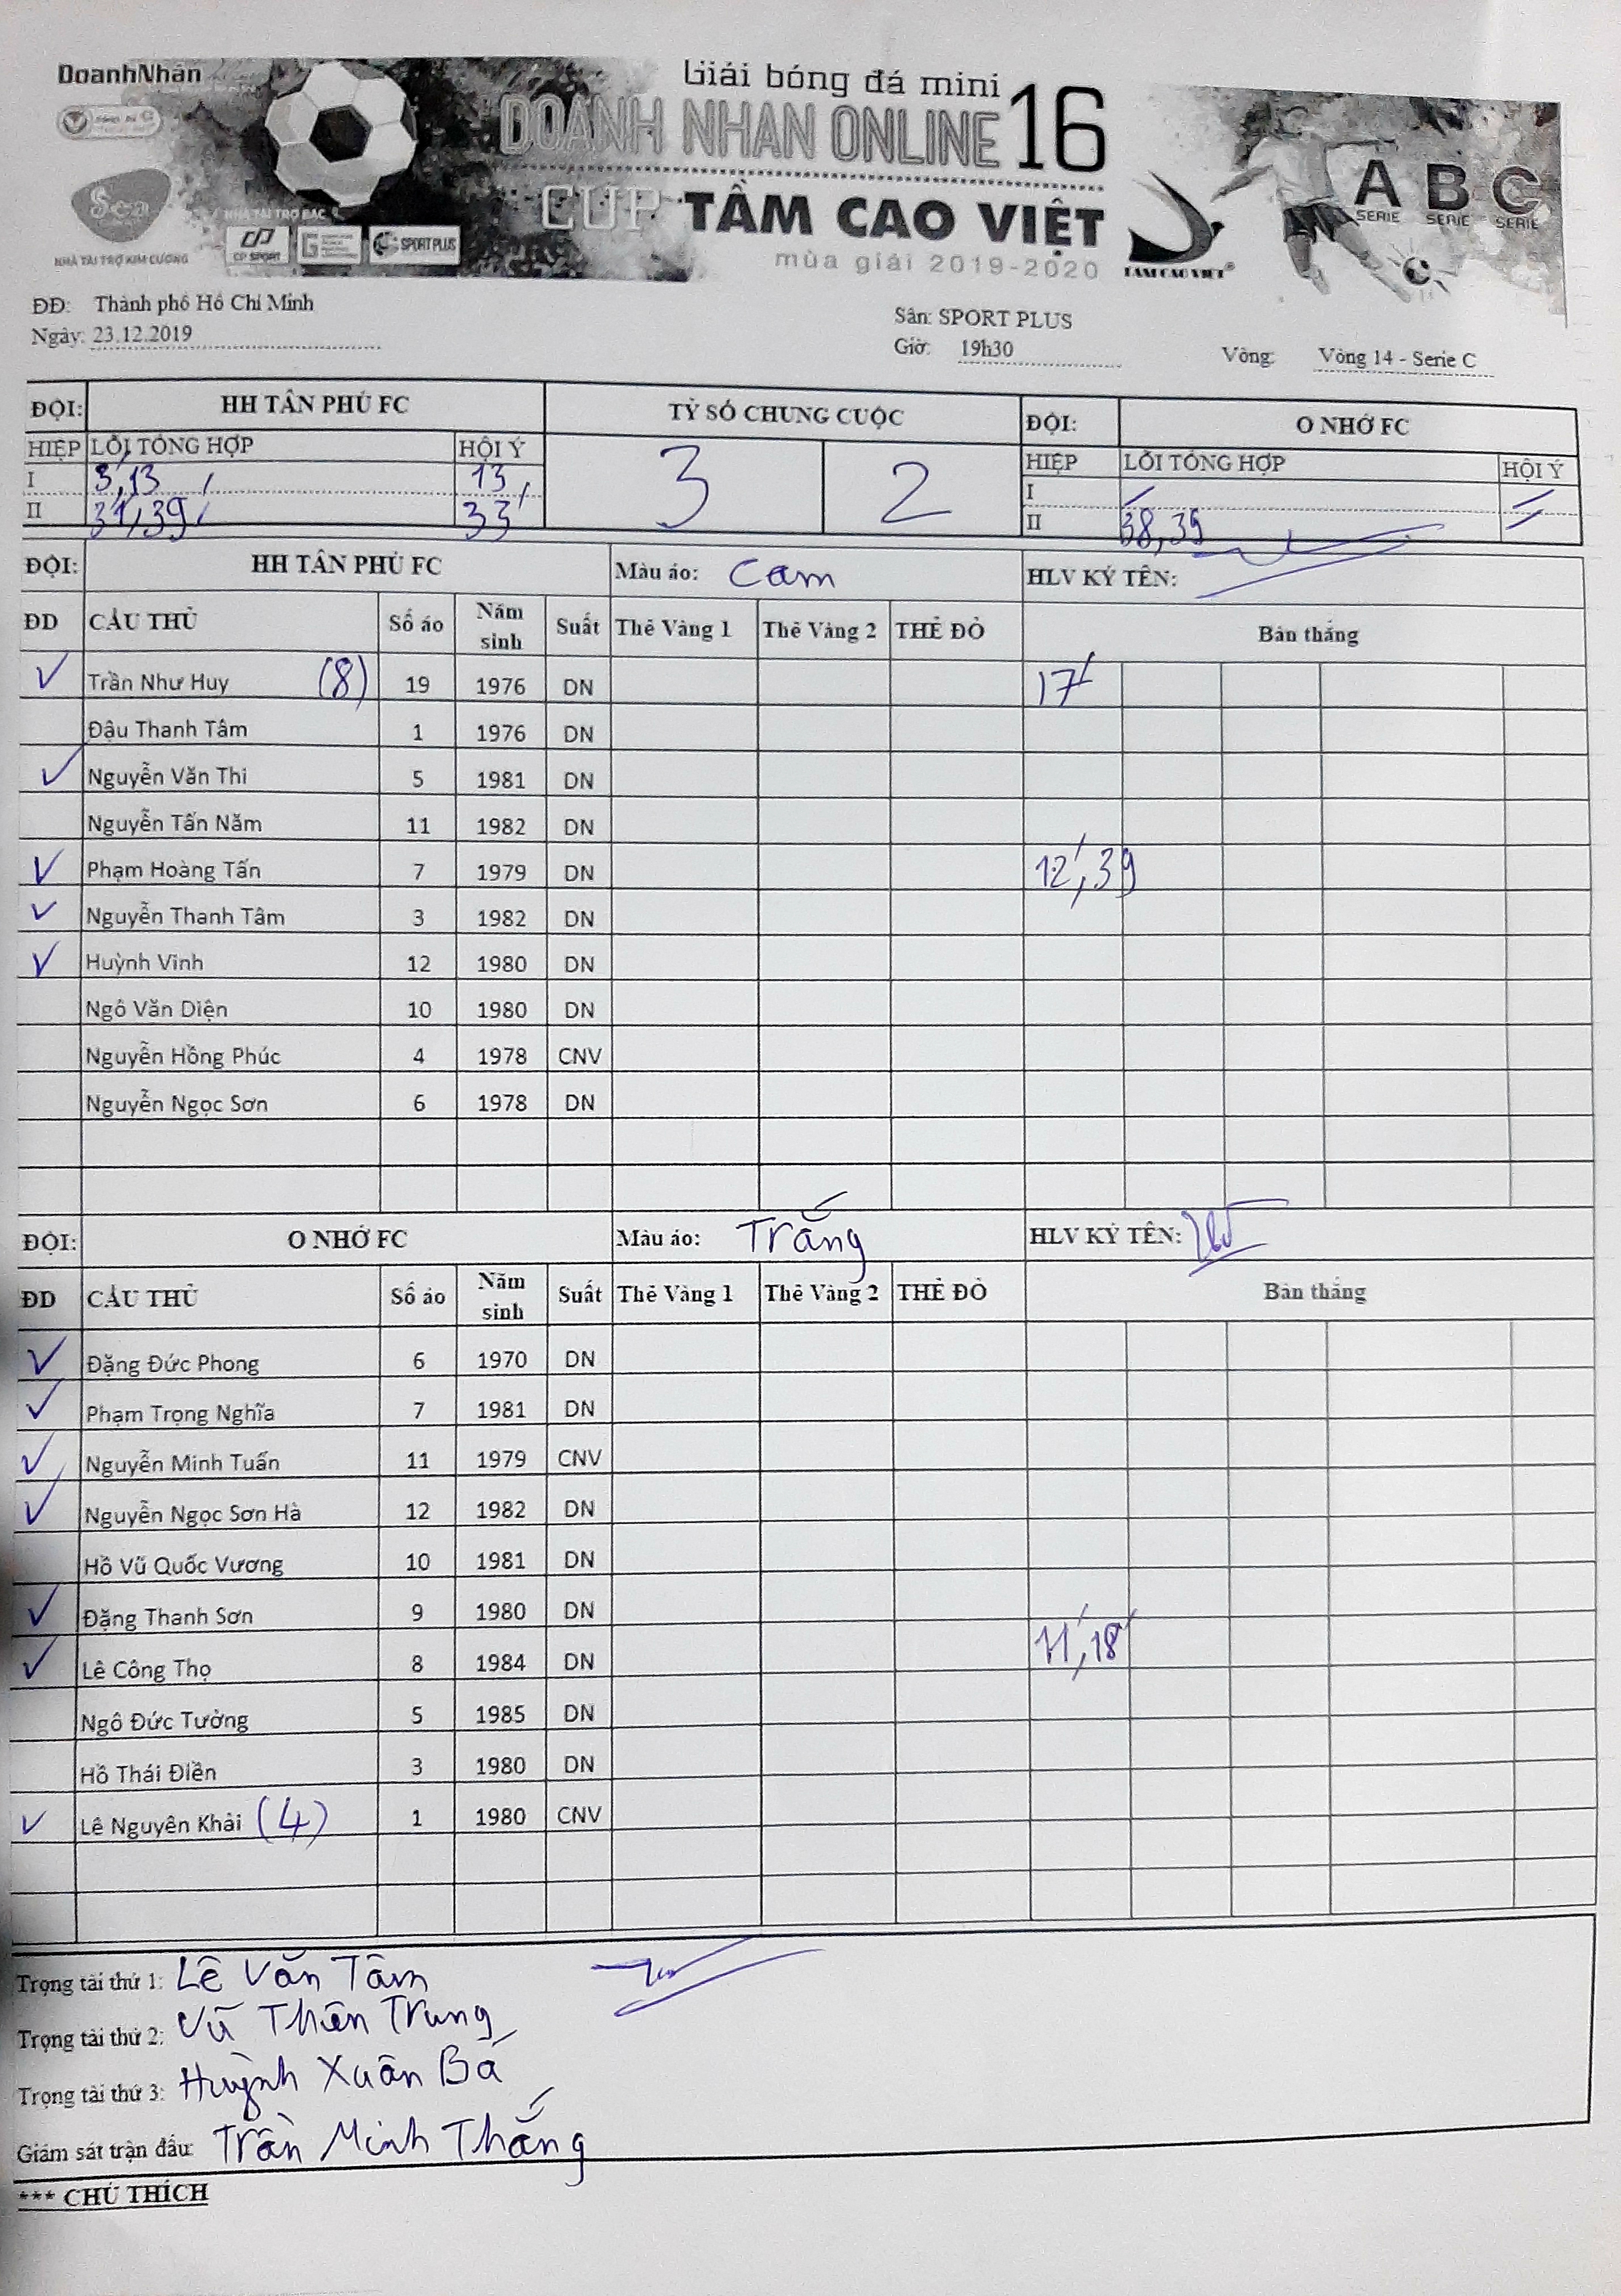 DoanhNhân
Giải bóng đá mini
DOANH NHAN ONLINE 16
CUP TẦM CAO VIỆT
mùa giải 2019-2020
TAM CAO VIET®
A SERIE B SERIE C SERIE
Sea
NHÀ TÀI TRỢ KIM CƯƠNG
NHÀ TÀI TRỢ BẠC
CP SPORT
SPORT PLUS
ĐĐ: Thành phố Hồ Chí Minh
Sân: SPORT PLUS
Ngày: 23.12.2019 Giờ: 19h30 Vòng: Vòng 14 - Serie C
ĐỘI: HH TÂN PHÚ FC TỶ SỐ CHUNG CUỘC ĐỘI: O NHỚ FC
HIỆP LỖI TỔNG HỢP HỘI Ý 3 2 HIỆP LỖI TỔNG HỢP HỘI Ý
I 3, 13 13 I
II 31, 39 33 II 38, 39
ĐỘI: HH TÂN PHÚ FC Màu áo: Cam HLV KÝ TÊN:
ĐD CẦU THỦ Số áo Năm sinh Suất Thẻ Vàng 1 Thẻ Vàng 2 THẺ ĐỎ Bàn thắng
Trần Như Huy (8) 19 1976 DN 17'
Đậu Thanh Tâm 1 1976 DN
Nguyễn Văn Thi 5 1981 DN
Nguyễn Tấn Năm 11 1982 DN
Phạm Hoàng Tấn 7 1979 DN 12', 39
Nguyễn Thanh Tâm 3 1982 DN
Huỳnh Vinh 12 1980 DN
Ngô Văn Diện 10 1980 DN
Nguyễn Hồng Phúc 4 1978 CNV
Nguyễn Ngọc Sơn 6 1978 DN
ĐỘI: O NHỚ FC Màu áo: Trắng HLV KÝ TÊN:
ĐD CẦU THỦ Số áo Năm sinh Suất Thẻ Vàng 1 Thẻ Vàng 2 THẺ ĐỎ Bàn thắng
Đặng Đức Phong 6 1970 DN
Phạm Trọng Nghĩa 7 1981 DN
Nguyễn Minh Tuấn 11 1979 CNV
Nguyễn Ngọc Sơn Hà 12 1982 DN
Hồ Vũ Quốc Vương 10 1981 DN
Đặng Thanh Sơn 9 1980 DN
Lê Công Thọ 8 1984 DN 11', 18'
Ngô Đức Tường 5 1985 DN
Hồ Thái Điền 3 1980 DN
Lê Nguyên Khải (4) 1 1980 CNV
Trọng tài thứ 1: Lê Văn Tâm
Trọng tài thứ 2: Vũ Thiên Trung
Trọng tài thứ 3: Huỳnh Xuân Bá
Giám sát trận đấu: Trần Minh Thắng
*** CHÚ THÍCH